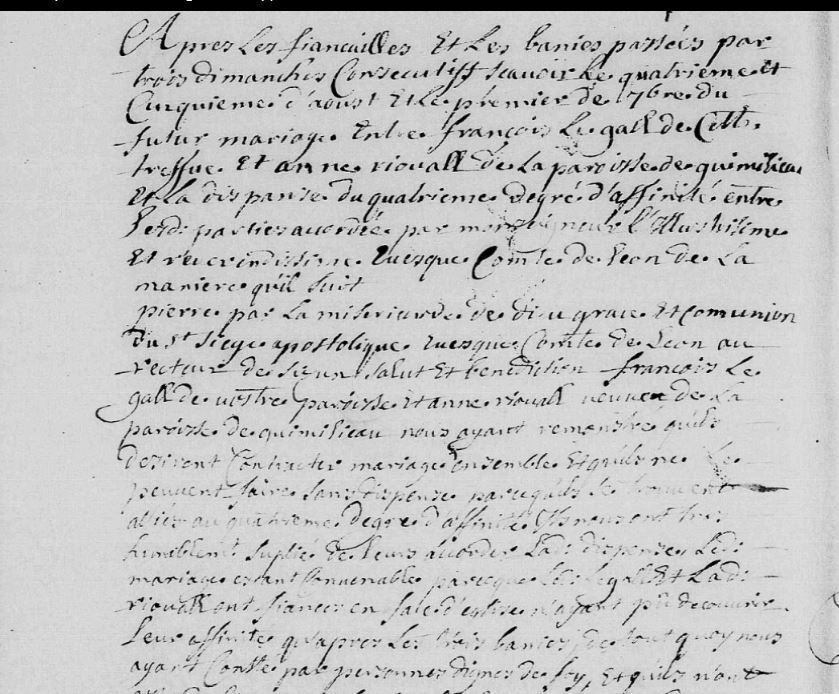 Apres Les fiancailles Et Les banies passées par
trois dimanches Consecutiff scavoir Le quatrieme et
Cinquieme d'aoust Et Le premier de 7bre du
futur mariage Entre françois Le gall de Cette
treffue Et anne riouall de La paroisse de quimiliau
Et La dispanse du quatrieme degré d'affinité entre
Lesd: parties accordée par monseigneur l'Illustrisime
Et reverindissime Evesque Comte de Leon de La
maniere qu'il suit
pierre par La misericorde de dieu grace Et Comunion
du St Siege apostolique Evesque Comte de Leon au
recteur de Sizun salut Et benediction françois Le
gall de vostre paroisse Et anne riouall veuve de La
paroisse de quimiliau nous ayant remonstré qu'ils
desiront Contracter mariage ensemble Et qu'ils ne Le
peuvent faire sans dispense parcequ'ils se trouvent
alliés au quatrieme degre d'affinité Ils nous ont tres
humblemt suplié de Leurs accorder Lad: dispense Led:
mariage estant Convenable parceque Led: Le gall Et Lad:
riouall ont fiances en face d'eglise n'ayant pû decouvrir
Leur affinite qu'apres Les trois banies, de tout quoy nous
ayant Consté par personnes dignes de foy, Et qu'ils n'ont